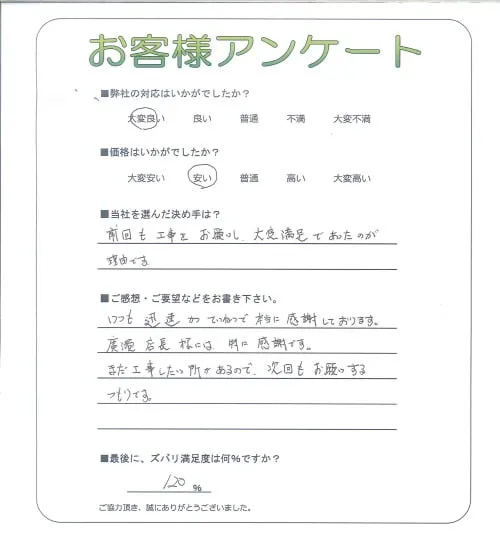 お客様アンケート
■弊社の対応はいかがでしたか？
大変良い 良い 普通 不満 大変不満
■価格はいかがでしたか？
大変安い 安い 普通 高い 大変高い
■当社を選んだ決め手は？
前回も工事をお願いし、大変満足であったのが
理由です。
■ご感想・ご要望などをお書き下さい。
いつも迅速かつていねいで本当に感謝しております。
店長様には特に感謝です。
まだ工事したい所があるので、次回もお願いする
つもりです。
■最後に、ズバリ満足度は何％ですか？
120 %
ご協力頂き、誠にありがとうございました。